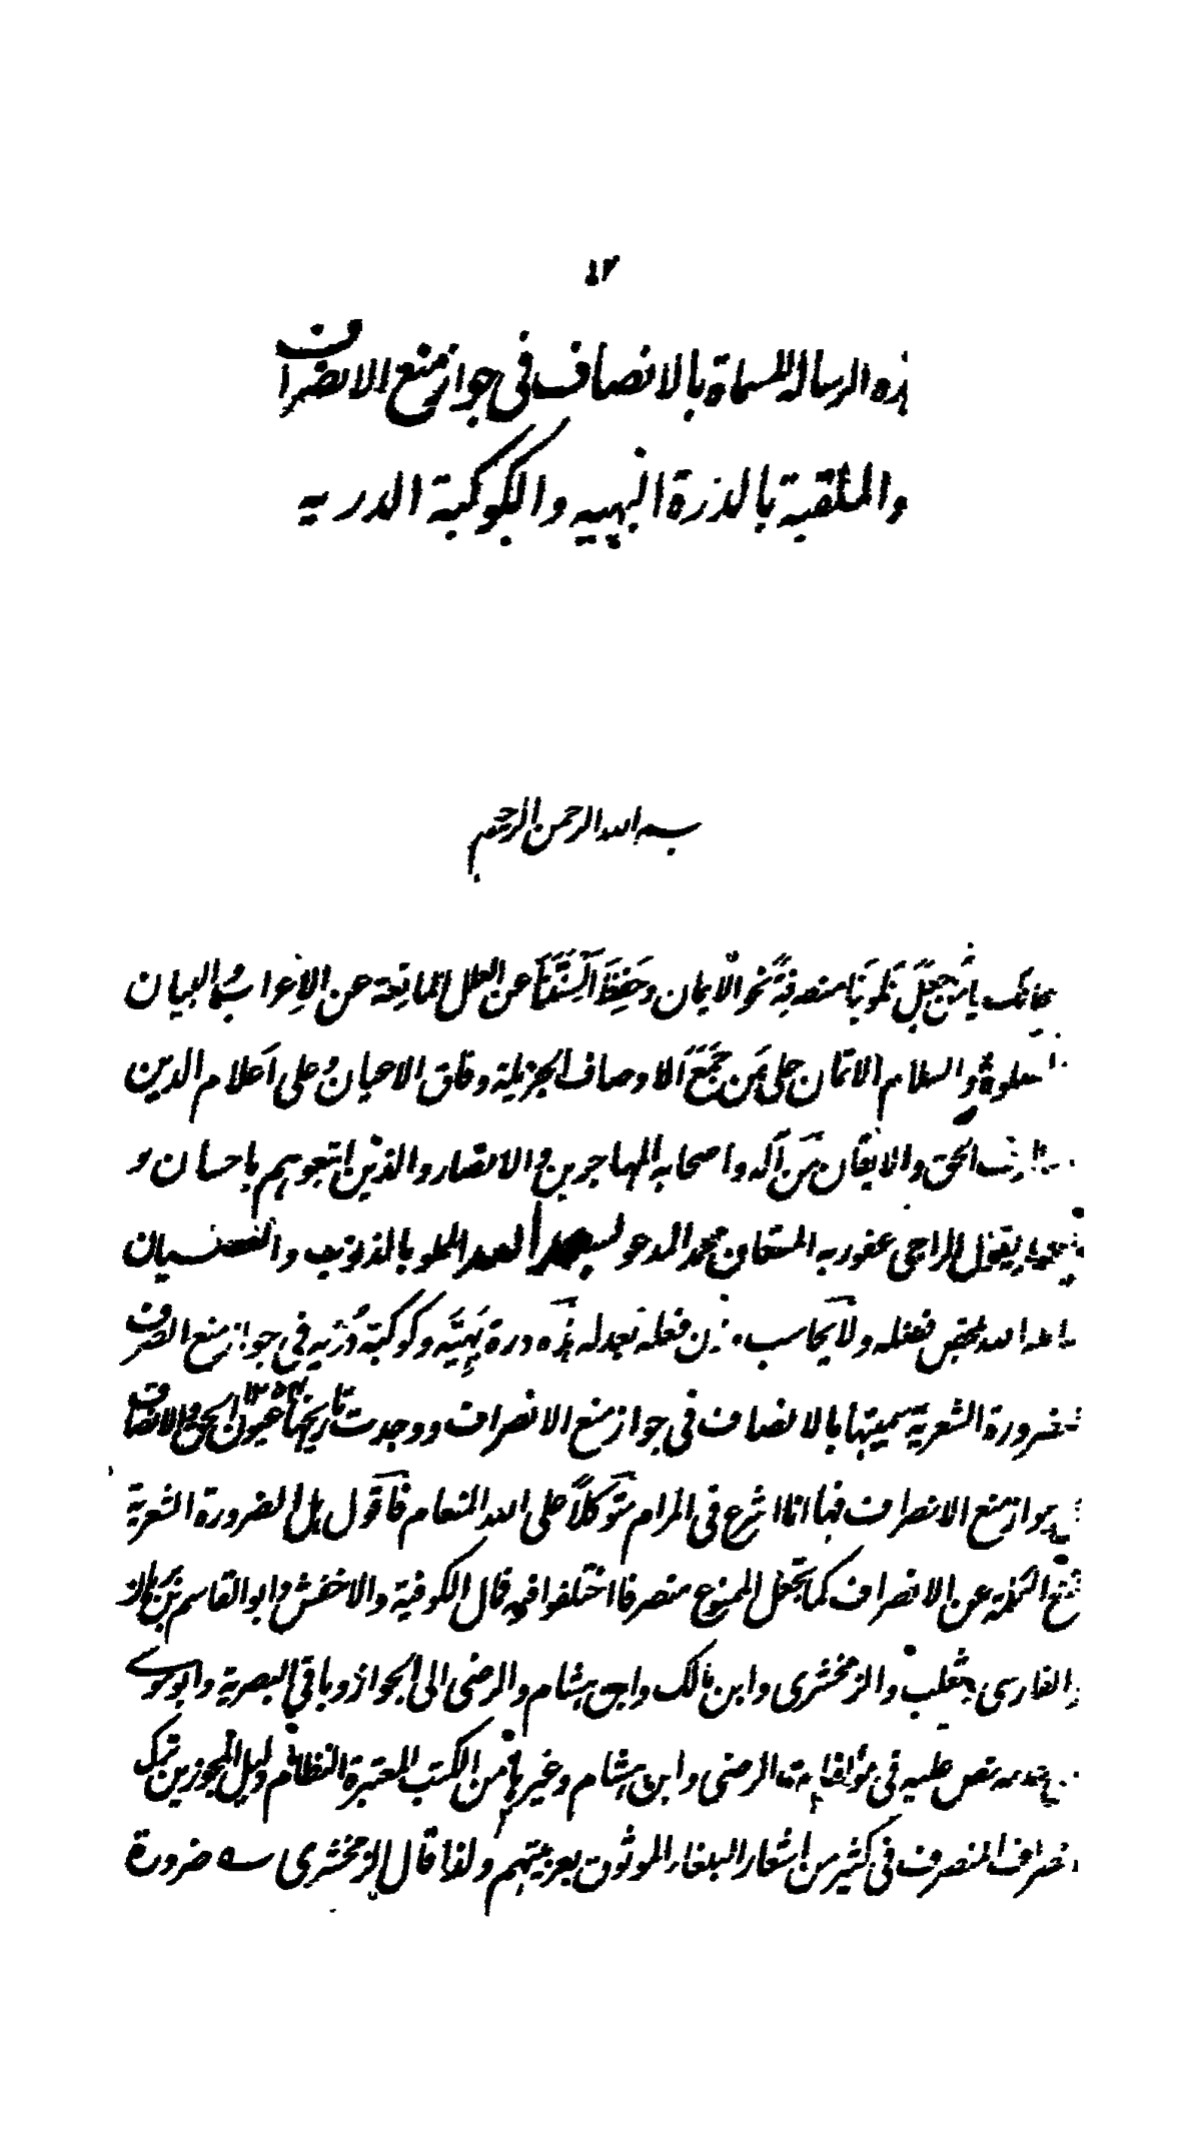 ١٢
هذه الرسالة المسماة بالانصاف فى جواز منع الانصراف
والملقبة بالدرة البهية والكوكبة الدريه
بسم الله الرحمن الرحيم
يا من جعل قلوبنا منصرفة نحو الايمان وحفظ ألسنتنا عن العلل المانعة عن الاعراب والبيان
والسلام الاتمان على من جمع الاوصاف الجزيلة وفاق الاحيان على أعلام الدين
الحق والايقان من آله واصحابه المهاجرين والانصار والذين اتبعوهم باحسان و
يقول الراجى عفو ربه المستعان محمد المدعو العبد المملو بالذنوب والنسيان
الله بمحض فضله ولا يحاسب فعله بعدله هذه درة بهية وكوكبة درّيه فى جواز منع الصرف
ضرورة الشعرية سميتها بالانصاف فى جواز منع الانصراف ووجدت تاريخها عيون الحق والانصاف
جواز منع الانصراف فها انا اشرع فى المرام متوكلا على الله المنعام فأقول هل الضرورة الشعرية
تمنع الكلمة عن الانصراف كما تجعل الممنوع منصرفا اختلفوا فيه قال الكوفية والاخفش وابو القاسم بن
الفارسى وثعلب والزمخشرى وابن مالك وابن هشام والرضى الى الجواز وباقى البصرية وابو موسے
نص عليه فى مؤلفاته الرضى وابن هشام وغيرها من الكتب المعتبرة العظام دليل المجوزين ترك
صراف المنصرف فى كثير من اشعار البلغاء الموثوق بعربيتهم ولذا قال الزمخشرى فے ضرورة